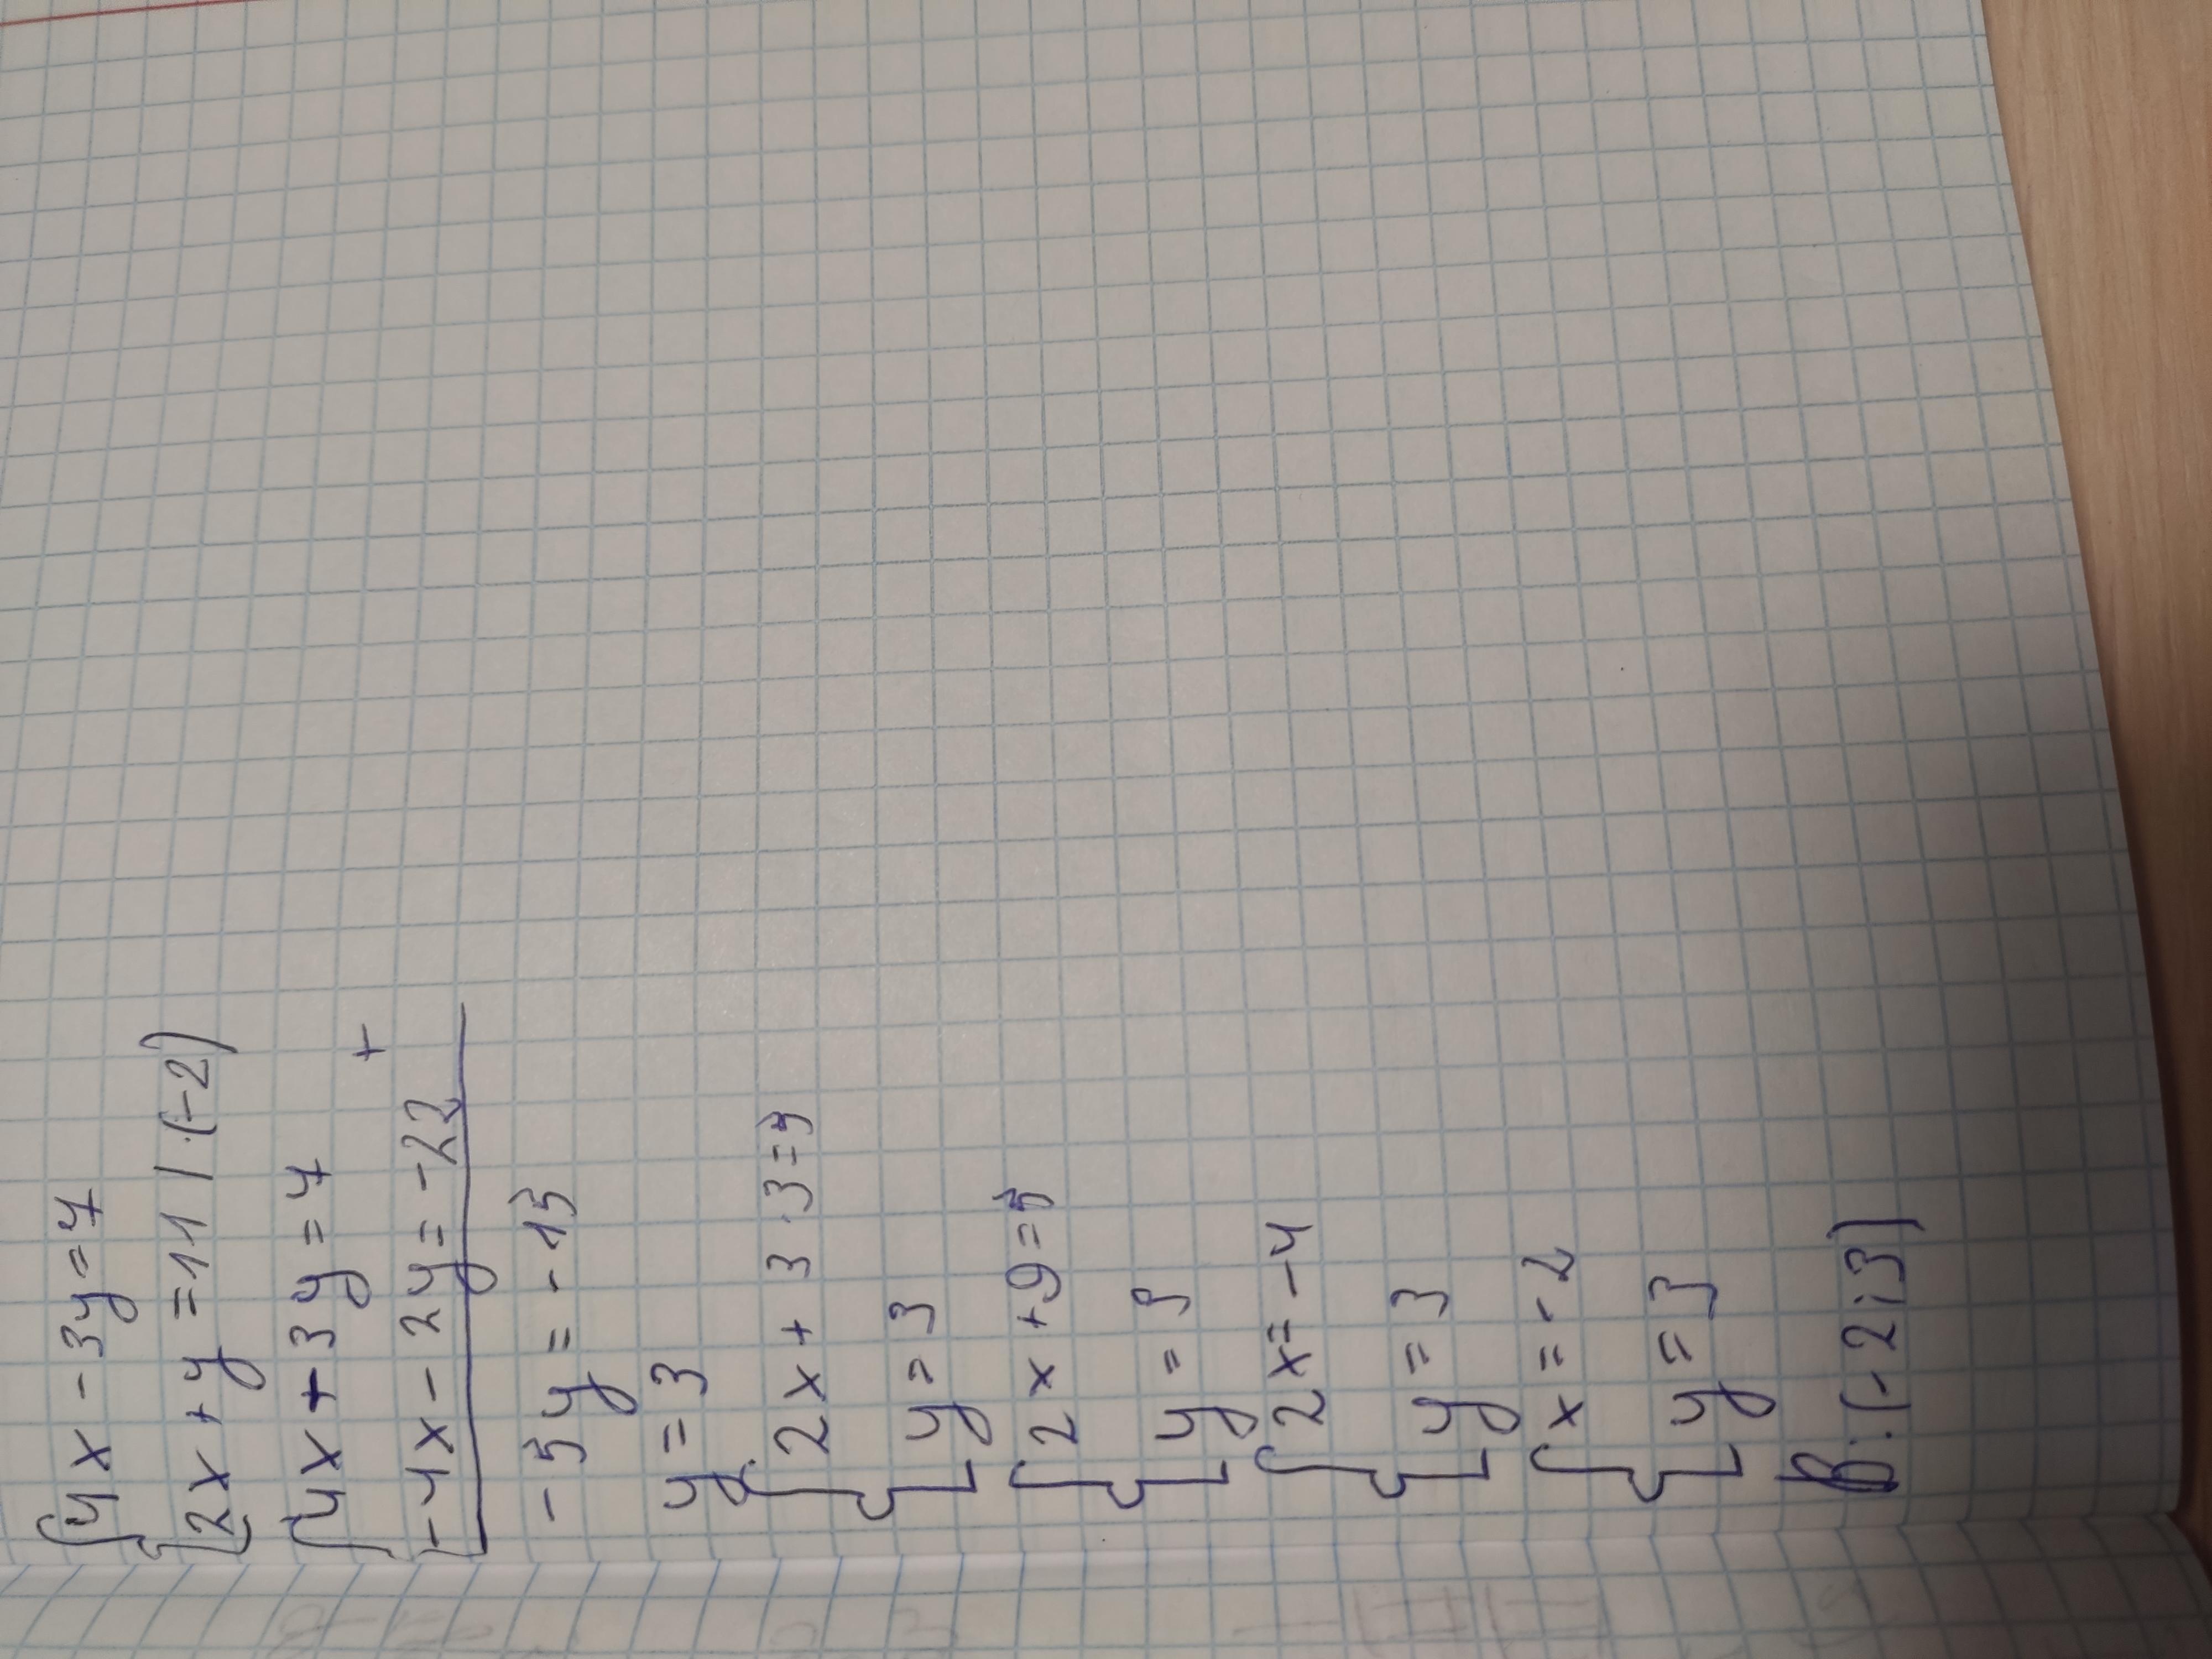 4x - 3y = 7
2x + y = 11 | ·(-2)
4x + 3y = 7
+
-4x - 2y = -22
-5y = -15
y = 3
2x + 3 · 3 = 5
y = 3
2x + 9 = 5
y = 3
2x = -4
y = 3
x = -2
y = 3
В: (-2; 3)